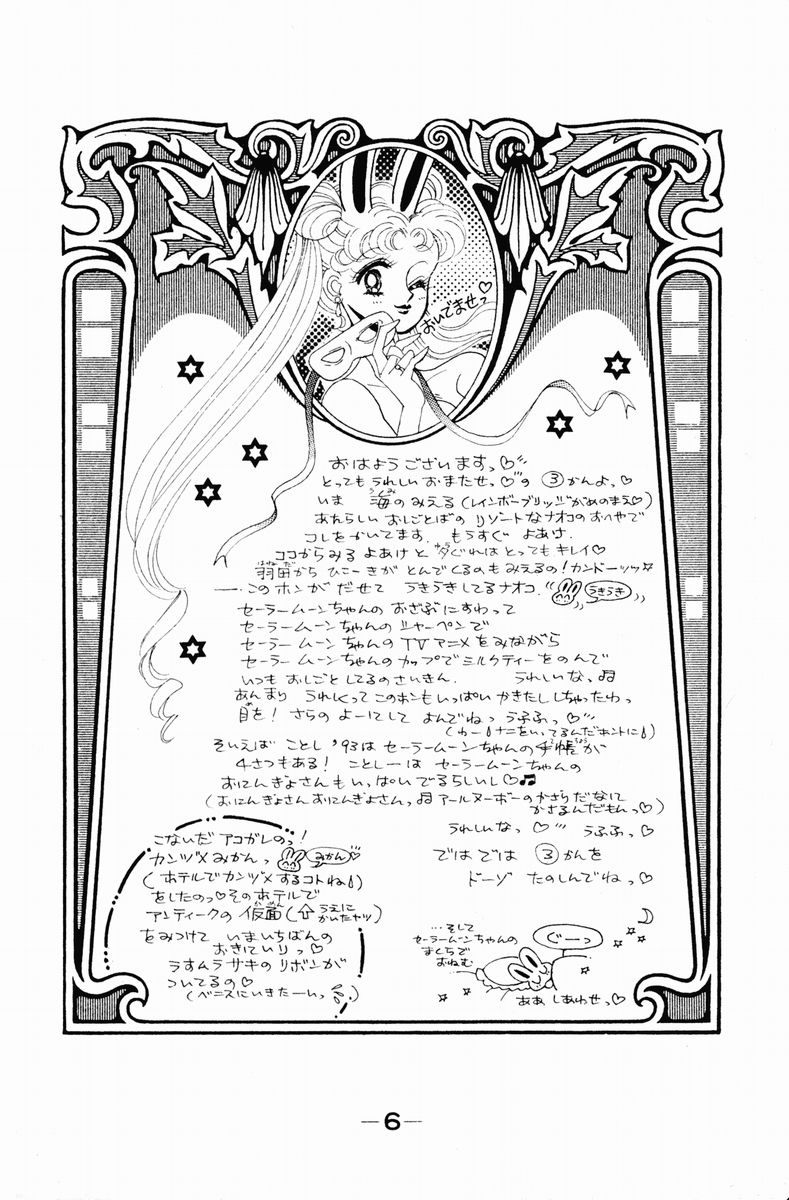 おいでませっ♡
おはようございますっ♡
とってもうれしいおまたせっ♡の③かんよっ♡
いま 海のみえる(レインボーブリッジがめのまえ♡)
あたらしいおしごとばの リゾートなナオコのおへやで
コレをかいてます. もうすぐ よあけ.
ココからみる よあけと 夕ぐれはとってもキレイ♡
羽田から ひこーきが とんでくるのもみえるの!カンドーッッ☆
——.このホンが だせて うきうきしてるナオコ.
うきうき
セーラームーンちゃんの おざぶにすわって
セーラームーンちゃんの シャーペンで
セーラームーンちゃんの TVアニメをみながら
セーラームーンちゃんの カップでミルクティーをのんで
いつも おしごとしてるのさいきん. うれしいな、♫
あんまり うれしくってこのホンもいっぱいかきたししちゃったわっ
目を! さらの よーにして よんでねっ うふふっ♡
(わー!ナニをいってるんだホントに)
そいえば ことし '93は セーラームーンちゃんの手帳が
4さつもある! ことしーは セーラームーンちゃんの
おにんぎょさんもいっぱいでるらしいし♡♫
(おにんぎょさんおにんぎょさんっ♫アールヌーボーのかざりだなに
かざるんだもんっ♡)
うれしいなっ♡ うふふっ♡
では では ③かんを
ドーゾ たのしんでねっ♡
こないだ アコガレのっ!
カンヅメみかんっ
みかん
(ホテルでカンヅメするコトね)
をしたのっ♡そのホテルで
アンティークの 仮面(⇧うえにかいたヤツ)
をみつけて いまいちばんの
おきにいりっ♡
うすムラサキのリボンが
ついてるの♡
(ベニスにいきたーいっ)
…そして
セーラームーンちゃんの
まくらで
おねむ
ぐーっ
ああ しあわせっ♡
—6—